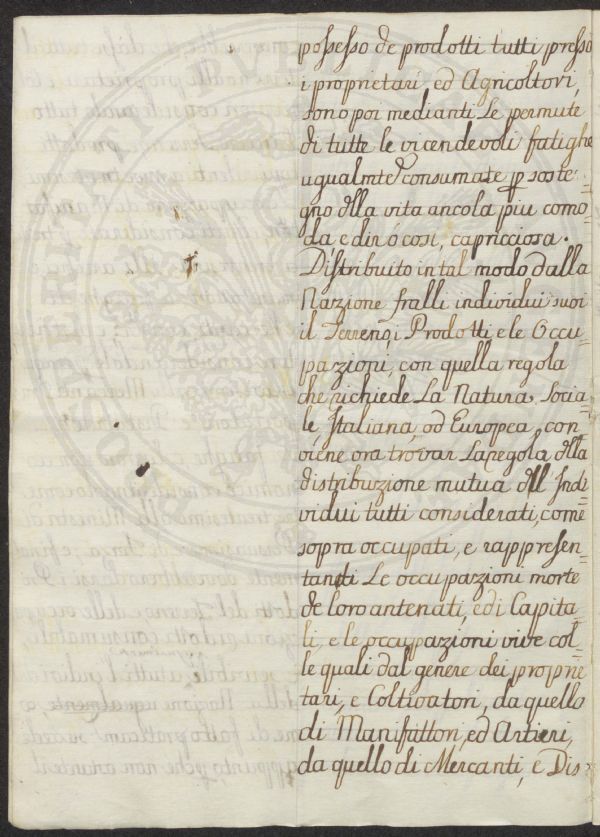 possesso de prodotti tutti presso
i proprietarj, ed Agricoltori,
sono poi medianti Le permute
di tutte le vicendevoli fatighe
ugualmte consumate p soste=
gno dlla vita ancola piu como=
da, e dirò così, capricciosa.
Distribuito in tal modo dalla
Nazione fralli individui suoi
il Terreno, i Prodotti, e le Occu=
pazioni, con quella regola
che richiede La Natura Socia=
le, Italiana, od Europea, con=
viene ora trovar La regola dlla
distribuzione mutua dll Indi=
vidui tutti considerati, come
sopra occupati, e rappresen=
tanti Le occupazioni morte
de loro antenati, ed i Capita=
li, e le occupazioni vive col=
le quali dal genere dei proprie
tari, e Coltivatori, da quello
di Manifattori, ed Artieri,
da quello di Mercanti, e Dis=